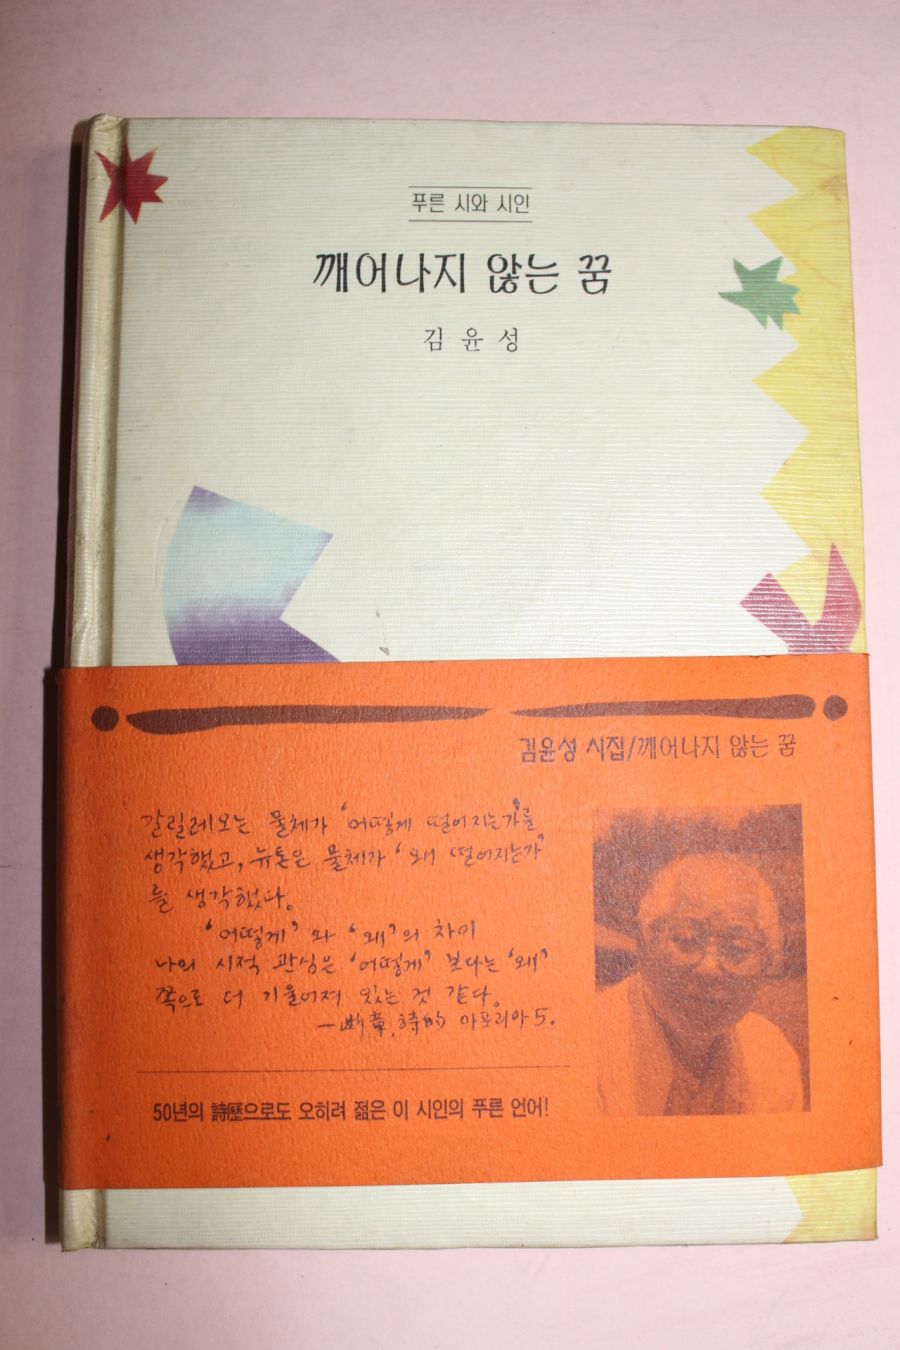 푸른 시와 시인
깨어나지 않는 꿈
김 윤 성
김윤성 시집/깨어나지 않는 꿈
갈릴레오는 물체가 '어떻게 떨어지는가'를
생각했고, 뉴톤은 물체가 '왜 떨어지는가'
를 생각했다.
'어떻게'와 '왜'의 차이
나의 시적 관심은 '어떻게' 보다는 '왜'
쪽으로 더 기울어져 있는 것 같다.
—斷章, 詩的 아포리아 5.
50년의 詩歷으로도 오히려 젊은 이 시인의 푸른 언어!